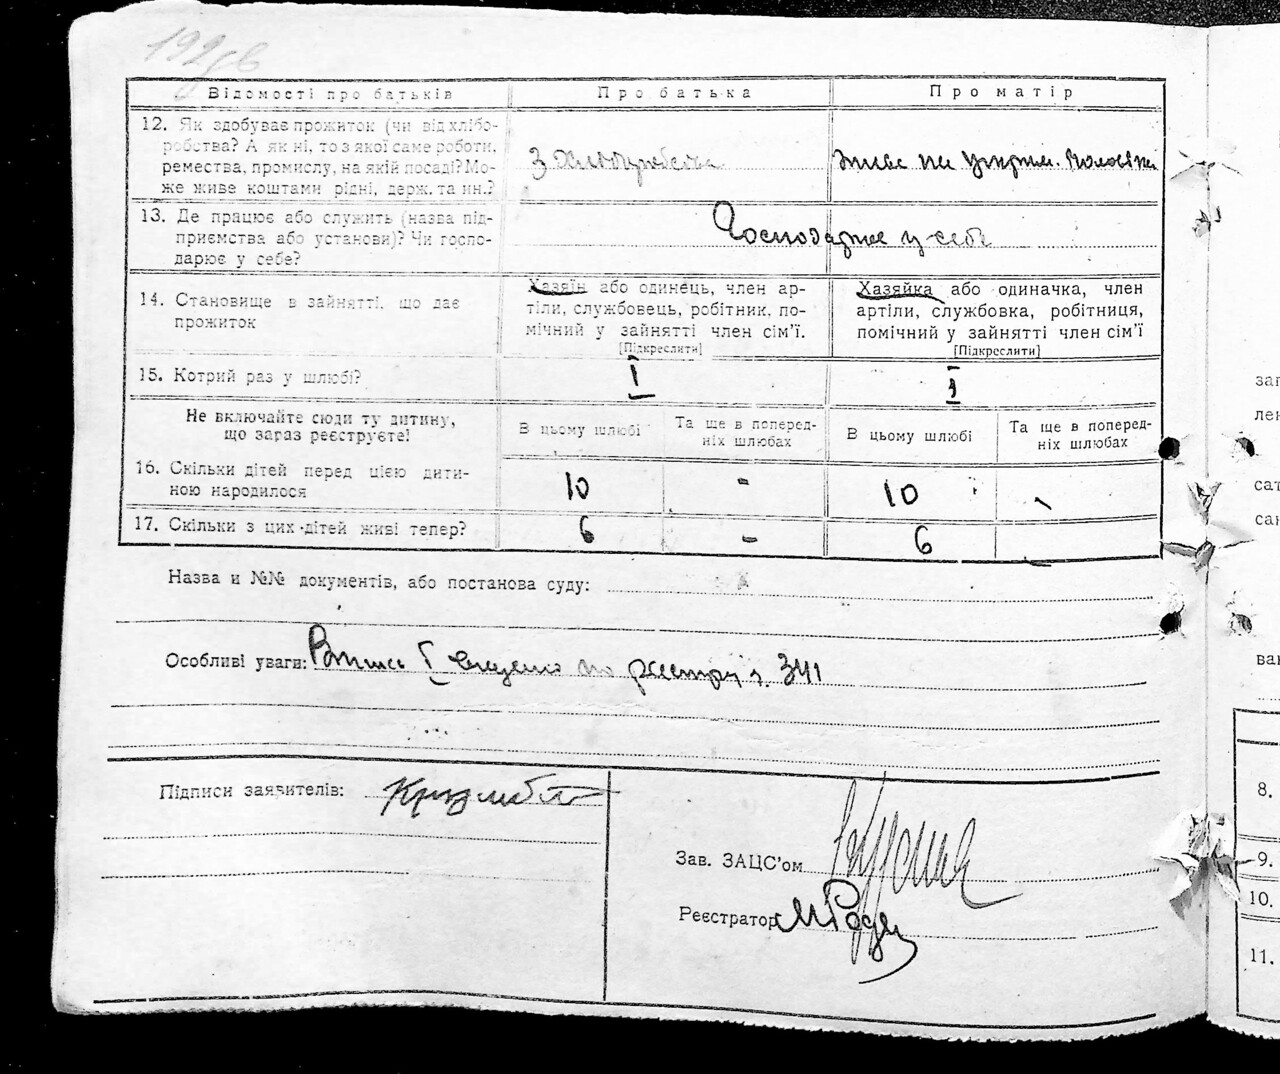 192 зв
Відомості про батьків
Про батька
Про матір
12. Як здобуває прожиток (чи від хлібо-
робства? А як ні, то з якої саме роботи,
ремества, промислу, на якій посаді? Мо-
же живе коштами рідні, держ. та ин.?
З хліборобства
живе на утрим. чоловіка
13. Де працює або служить (назва під-
приємства або установи)? Чи госпо-
дарює у себе?
Господарює у себе
14. Становище в зайнятті, що дає
прожиток
Хазяїн або одинець, член ар-
тіли, службовець, робітник, по-
мічний у зайнятті член сім'ї.
[Підкреслити]
Хазяйка або одиначка, член
артіли, службовка, робітниця,
помічний у зайнятті член сім'ї
[Підкреслити]
15. Котрий раз у шлюбі?
I
1
Не включайте сюди ту дитину,
що зараз реєструєте!
В цьому шлюбі
Та ще в поперед-
ніх шлюбах
В цьому шлюбі
Та ще в поперед-
ніх шлюбах
16. Скільки дітей перед цією дити-
ною народилося
10
-
10
17. Скільки з цих дітей живі тепер?
6
-
6
Назва и №№ документів, або постанова суду:
Особливі уваги: по реєстру 341
Підписи заявителів:
Зав. ЗАЦС'ом
Реєстратор
заг
лен
сат
сан
ван
8.
9.
10.
11.